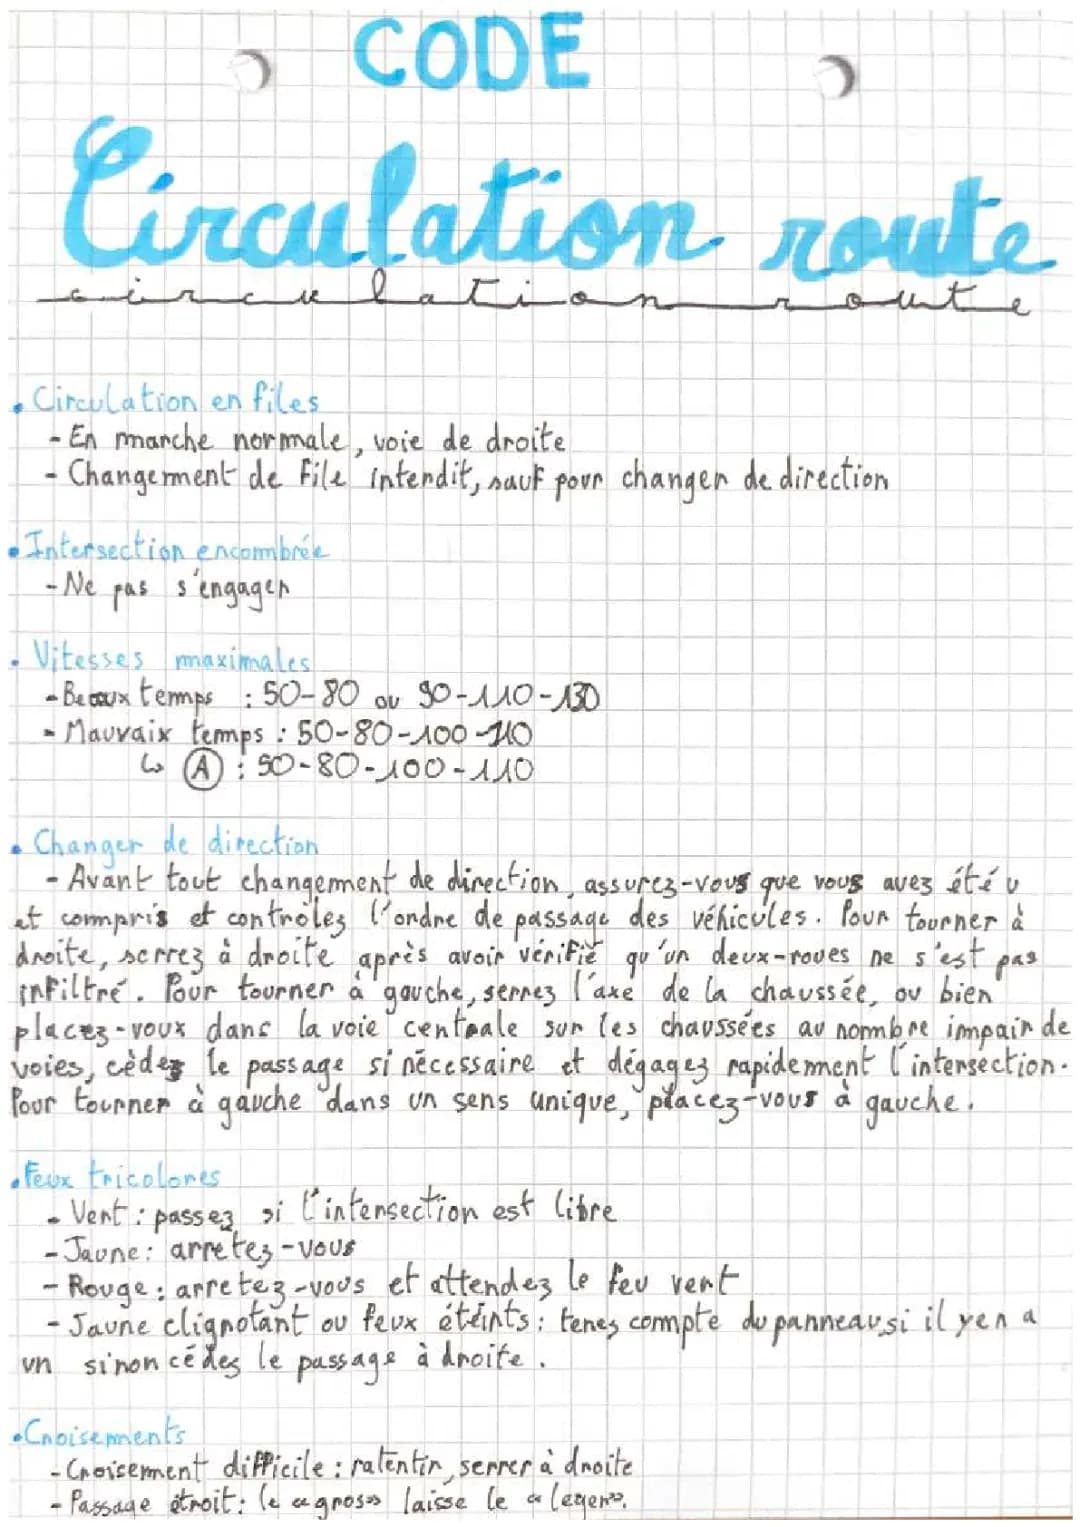 CODE
Circulation route
circulation route
• Circulation en files
- En marche normale, voie de droite
- Changement de file interdit, sauf pour changer de direction
• Intersection encombrée
- Ne pas s'engager
• Vitesses maximales
- Beaux temps : 50-80 ou 90-110-130
- Mauvaix temps : 50-80-100-110
↳ (A) : 50-80-100-110
• Changer de direction
- Avant tout changement de direction, assurez-vous que vous avez été u
et compris et controlez l'ordre de passage des véhicules. Pour tourner à
droite, serrez à droite après avoir vérifié qu'un deux-roues ne s'est pas
infiltré. Pour tourner à gauche, serrez l'axe de la chaussée, ou bien
placez-voux dans la voie centrale sur les chaussées au nombre impair de
voies, cèdez le passage si nécessaire et dégagez rapidement l'intersection.
Pour tourner à gauche dans un sens unique, placez-vous à gauche.
• Feux tricolores
- Vert : passez si l'intersection est libre
- Jaune : arretez-vous
- Rouge : arretez-vous et attendez le feu vert
- Jaune clignotant ou feux éteints : tenez compte du panneau si il y en a
un sinon cédez le passage à droite.
• Croisements
- Croisement difficile : ralentir, serrer à droite
- Passage étroit : le «gros» laisse le «leger».